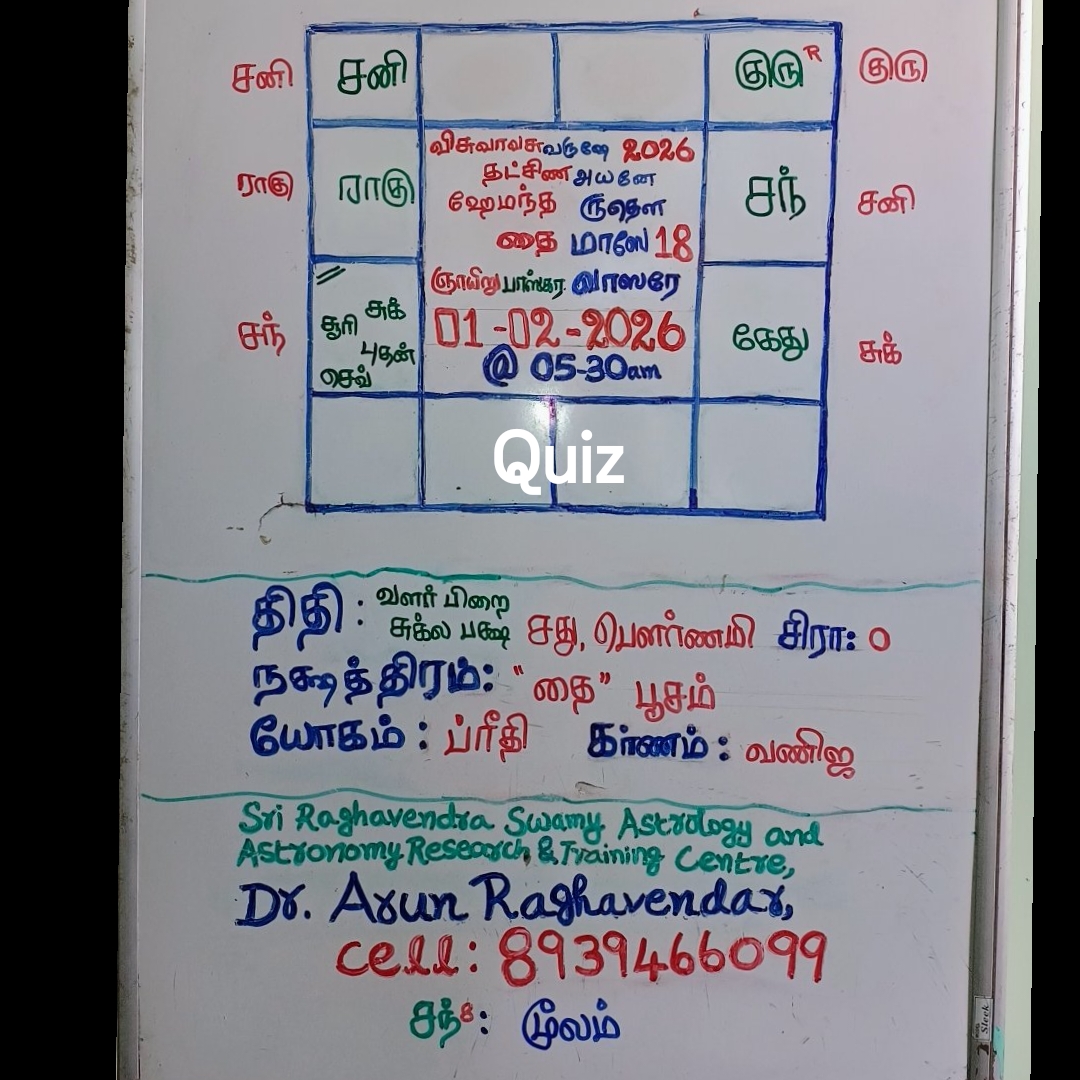 சனி சனி குரு R குரு
விசுவாவசு வருஷே 2026
தட்சிண அயனே
ராகு ராகு ஹேமந்த ருதௌ சந் சனி
தை மாஸே 18
ஞாயிறு பாஸ்கர வாஸரே
சுக்
சந் சூரி 01-02-2026 கேது சுக்
புதன்
செவ் @ 05-30am
Quiz
திதி : வளர் பிறை
சுக்ல பக்ஷ சது, பௌர்ணமி சிரா: 0
நக்ஷத்திரம்: "தை" பூசம்
யோகம் : ப்ரீதி கர்ணம் : வணிஜ
Sri Raghavendra Swamy Astrology and
Astronomy Research & Training Centre,
Dr. Arun Raghavendar,
cell: 8939466099
சந்8: மூலம்
Sleek